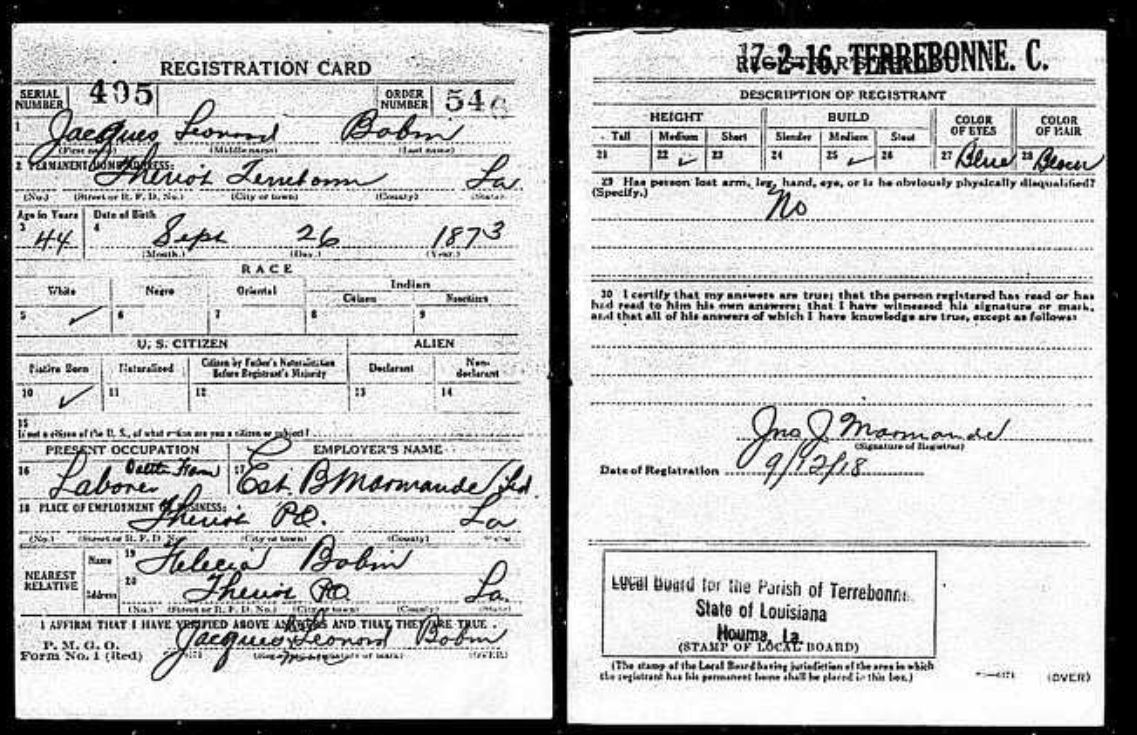 REGISTRATION CARD
SERIAL NUMBER 495 ORDER NUMBER 546
1 Jacques Leonard Bobin
(First name) (Middle name) (Last name)
2 PERMANENT HOME ADDRESS:
Theriot Terrebonne La
(No.) (Street or R. F. D. No.) (City or town) (County) (State)
Age in Years Date of Birth
3 44 4 Sept 26 1873
(Month.) (Day.) (Year.)
RACE
White Negro Oriental Indian
Citizen Noncitizen
5 ✓ 6 7 8 9
U. S. CITIZEN ALIEN
Native Born Naturalized Citizen by Father's Naturalization Before Registrant's Majority Declarant Non-declarant
10 ✓ 11 12 13 14
15
If not a citizen of the U. S., of what nation are you a citizen or subject?
PRESENT OCCUPATION EMPLOYER'S NAME
16 Laborer 17 Est. B Marmande Ltd
18 PLACE OF EMPLOYMENT OR BUSINESS:
Theriot P.O. La
(No.) (Street or R. F. D. No.) (City or town) (County) (State)
NEAREST RELATIVE
Name 19 Felecia Bobin
Address 20 Theriot P.O. La.
(No.) (Street or R. F. D. No.) (City or town) (County) (State)
I AFFIRM THAT I HAVE VERIFIED ABOVE ANSWERS AND THAT THEY ARE TRUE
P. M. G. O.
Form No. 1 (Red) Jacques Leonard Bobin
(Registrant's signature or mark) (OVER)
17-2-16. TERREBONNE. C.
DESCRIPTION OF REGISTRANT
HEIGHT BUILD COLOR OF EYES COLOR OF HAIR
Tall Medium Short Slender Medium Stout
21 22 ✓ 23 24 25 ✓ 26 27 Blue 28 Brown
29 Has person lost arm, leg, hand, eye, or is he obviously physically disqualified?
(Specify.) No
30 I certify that my answers are true; that the person registered has read or has
had read to him his own answers; that I have witnessed his signature or mark,
and that all of his answers of which I have knowledge are true, except as follows:
Jno J Marmande
(Signature of Registrar)
Date of Registration 9/12/18
Local Board for the Parish of Terrebonne.
State of Louisiana
Houma, La.
(STAMP OF LOCAL BOARD)
(The stamp of the Local Board having jurisdiction of the area in which
the registrant has his permanent home shall be placed in this box.)
(OVER)